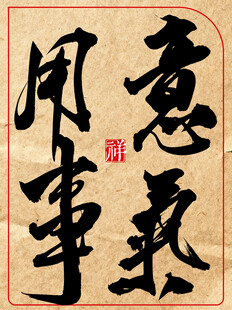 意氣
用事
祥